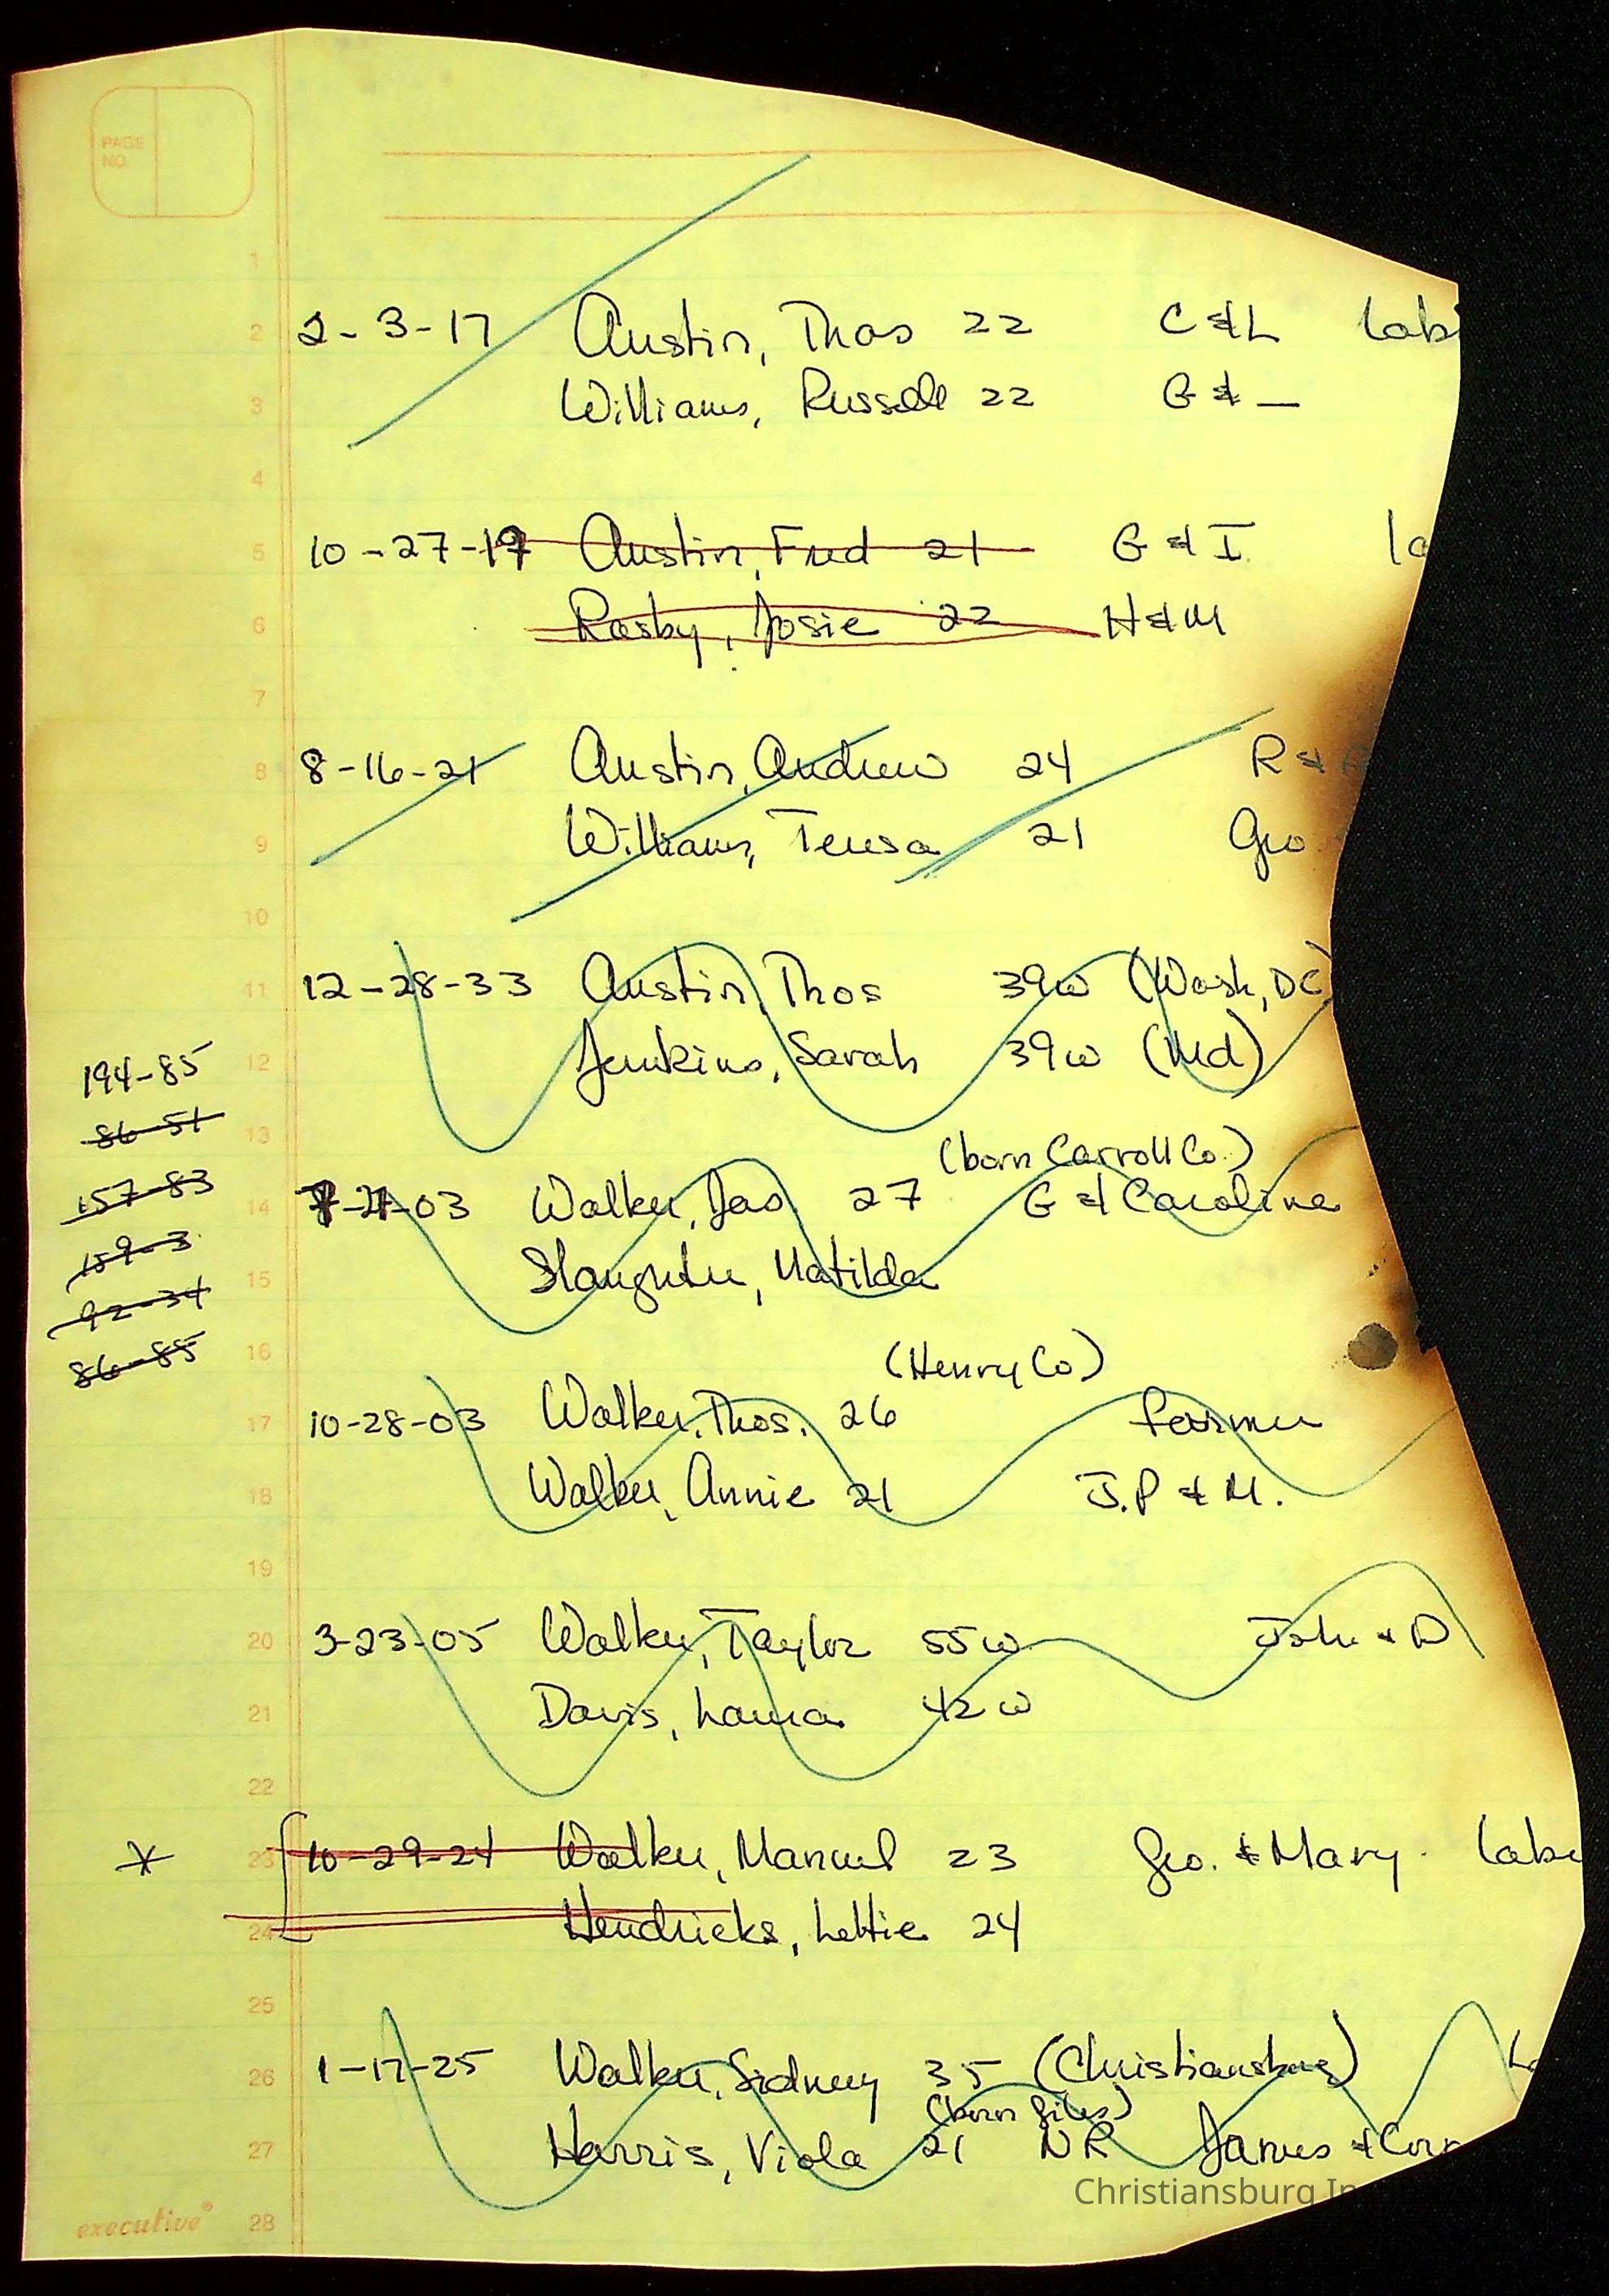 PAGE
NO.
1
2 2-3-17 Austin, Thos 22 C & L lab
3 Williams, Russell 22 G & —
4
5 10-27-19 Austin, Fred 21 G & I la
6 Rasby, Josie 22 H & M
7
8 8-16-21 Austin, Andrew 24 R &
9 Williams, Teresa 21 Geo.
10
11 12-28-33 Austin, Thos 39w (Wash, DC)
194-85 12 Jenkins, Sarah 39w (Md)
86-51 13 (born Carroll Co.)
157-83 14 -03 Walker, Jas 27 G & Caroline
159-3 15 Slaughter, Matilda
92-34
86-85 16 (Henry Co)
17 10-28-03 Walker, Thos. 26 farmer
18 Walker, Annie 21 J.P & M.
19
20 3-23-05 Walker, Taylor 55w John & D
21 Davis, Laura 42w
22
* 23 10-29-24 Walker, Manuel 23 Geo. & Mary. labe
24 Hendricks, Lettie 24
25
26 1-17-25 Walker, Sidney 35 (Christiansburg) La
(born Giles)
27 Harris, Viola 21 NR James & Corn
Christiansburg In
executive® 28